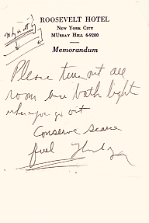 ROOSEVELT HOTEL
NEW YORK CITY
MURRAY HILL 64200
Memorandum
Please turn out all
room and bath light
when you go out
Conserve scarce
fuel